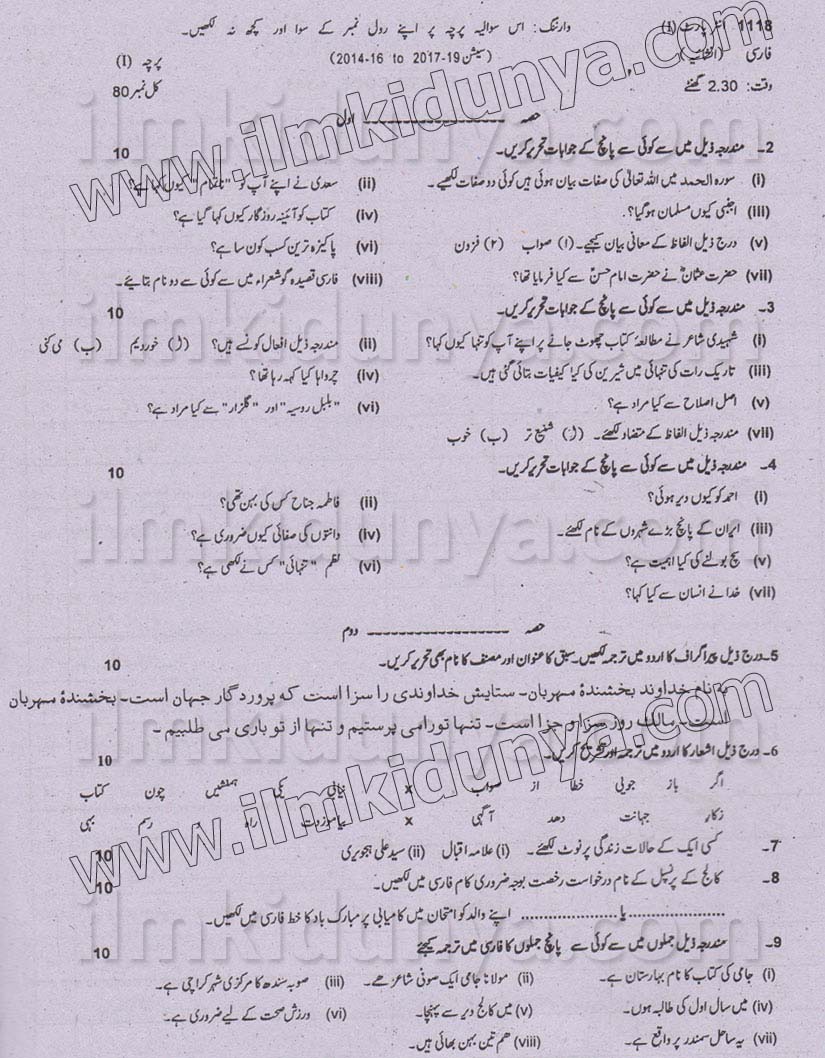 1118 انٹر پارٹ (I) وارننگ: اس سوالیہ پرچہ پر اپنے رول نمبر کے سوا اور کچھ نہ لکھیں۔
فارسی (انشائیہ) (سیشن 19-2017 to 2014-16) پرچہ (I)
وقت: 2.30 گھنٹے کل نمبر 80
حصہ ــــــــــــــــــــ اول
2۔ مندرجہ ذیل میں سے کوئی سے پانچ کے جوابات تحریر کریں۔ 10
(i) سورہ الحمد میں اللہ تعالیٰ کی صفات بیان ہوئی ہیں کوئی دو صفات لکھیے۔ (ii) سعدی نے اپنے آپ کو کیوں کہا ہے؟
(iii) اجنبی کیوں مسلمان ہو گیا؟ (iv) کتاب کو آئینہ روزگار کیوں کہا گیا ہے؟
(v) درج ذیل الفاظ کے معانی بیان کیجیے۔ (۱) صواب (۲) فزون (vi) پاکیزہ ترین کسب کون سا ہے؟
(vii) حضرت عثمانؓ نے حضرت امام حسنؓ سے کیا فرمایا تھا؟ (viii) فارسی قصیدہ گو شعراء میں سے کوئی سے دو نام بتائیے۔
3۔ مندرجہ ذیل میں سے کوئی سے پانچ کے جوابات تحریر کریں۔ 10
(i) شہیدی شاعر نے مطالعۂ کتاب چھوٹ جانے پر اپنے آپ کو تنہا کیوں کہا؟ (ii) مندرجہ ذیل افعال کونسے ہیں؟ (ل) خوردیم (ب) می کنی
(iii) تاریک رات کی تنہائی میں شیرین کی کیا کیفیات بتائی گئی ہیں۔ (iv) چرواہا کیا کہہ رہا تھا؟
(v) اصل اصلاح سے کیا مراد ہے؟ (vi) "بلبل روسیہ" اور "گلزار" سے کیا مراد ہے؟
(vii) مندرجہ ذیل الفاظ کے متضاد لکھئے۔ (ل) شنیع تر (ب) خوب
4۔ مندرجہ ذیل میں سے کوئی سے پانچ کے جوابات تحریر کریں۔ 10
(i) احمد کو کیوں دیر ہوئی؟ (ii) فاطمہ جناح کس کی بہن تھی؟
(iii) ایران کے پانچ بڑے شہروں کے نام لکھئے۔ (iv) دانتوں کی صفائی کیوں ضروری ہے؟
(v) سچ بولنے کی کیا اہمیت ہے؟ (vi) نظم "تنہائی" کس نے لکھی ہے؟
(vii) خدا نے انسان سے کیا کہا؟
حصہ ــــــــــــــــــــ دوم
5۔ درج ذیل پیراگراف کا اردو میں ترجمہ لکھیں۔ سبق کا عنوان اور مصنف کا نام بھی تحریر کریں۔ 10
به نام خداوند بخشندهٔ مهربان۔ ستایش خداوندی را سزا است که پروردگار جهان است۔ بخشندهٔ مهربان
است۔ مالک روز سزا و جزا است۔ تنها تو رامی پرستیم و تنها از تو یاری می طلبیم۔
6۔ درج ذیل اشعار کا اردو میں ترجمہ اور تشریح کریں۔ 10
اگر باز جویی خطا از صواب x نیابی یکی ہمنشیں چون کتاب
زکار جہانت دھد آگہی x بیاموزدت راہ و رسم بہی
7۔ کسی ایک کے حالات زندگی پر نوٹ لکھئے۔ (i) علامہ اقبال (ii) سید علی ہجویری 10
8۔ کالج کے پرنسپل کے نام درخواست رخصت بوجہ ضروری کام فارسی میں لکھیں۔ 10
.................... یا .................... اپنے والد کو امتحان میں کامیابی پر مبارک باد کا خط فارسی میں لکھیں۔
9۔ مندرجہ ذیل جملوں میں سے کوئی سے پانچ جملوں کا فارسی میں ترجمہ کیجئے 10
(i) جامی کی کتاب کا نام بہارستان ہے۔ (ii) مولانا جامی ایک صوفی شاعر ہے۔ (iii) صوبہ سندھ کا مرکزی شہر کراچی ہے۔
(iv) میں سال اول کی طالبہ ہوں۔ (v) میں کالج دیر سے پہنچا۔ (vi) ورزش صحت کے لیے ضروری ہے۔
(vii) یہ ساحل سمندر پر واقع ہے۔ (viii) ہم تین بہن بھائی ہیں۔
www.ilmkidunya.com
ilmkidunya.com
ilmkidunya.com
ilmkidunya.com
www.ilmkidunya.com
ilmkidunya.com